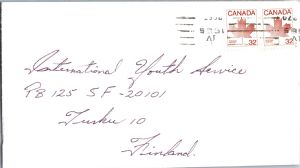 CANADA CANADA
32 32
International Youth Service
PB 125 SF-20101
Turku 10
Finland.